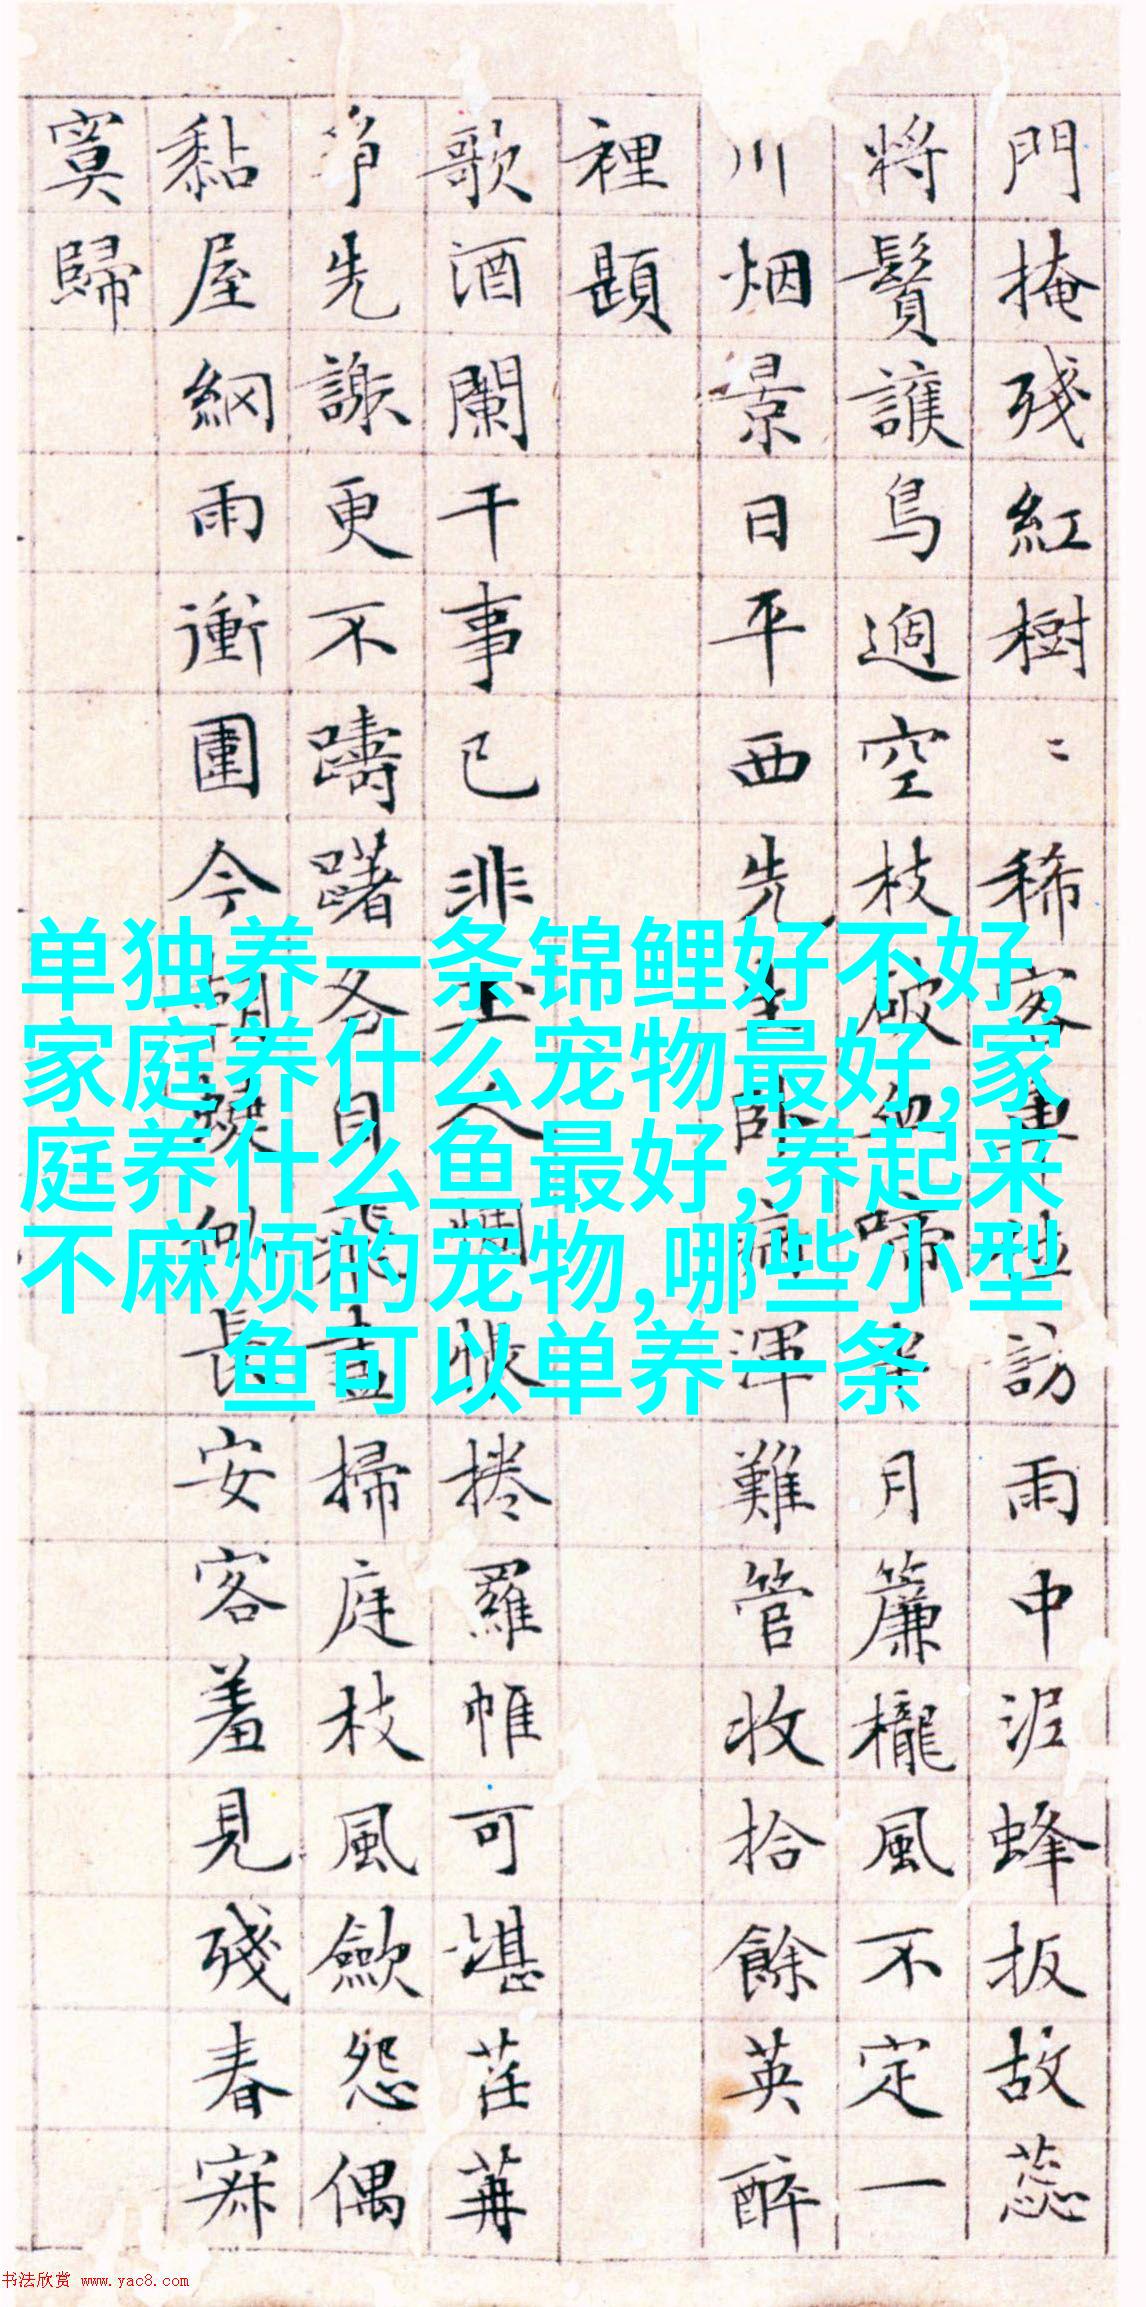 門掩殘紅樹〻稀客車訪雨中泥蜂扳故蕊
將鬢護鳥過空枝破血啼月簾櫳風不定一
川烟景日平西先生卧病渾難管收拾餘英醉
裡題
歌酒闌干事已非玉人惆悵捲羅帷可堪荏苒
争先謝更不躊躇各自飛盡掃庭枝風歛怨偶
黏屋網雨衝圍今朝蝶似長安客羞見殘春寂
寞歸
单独养一条锦鲤好不好,
家庭养什么宠物最好,家
庭养什么鱼最好,养起来
不麻烦的宠物,哪些小型
鱼可以单养一条
书法欣赏 www.yac8.com